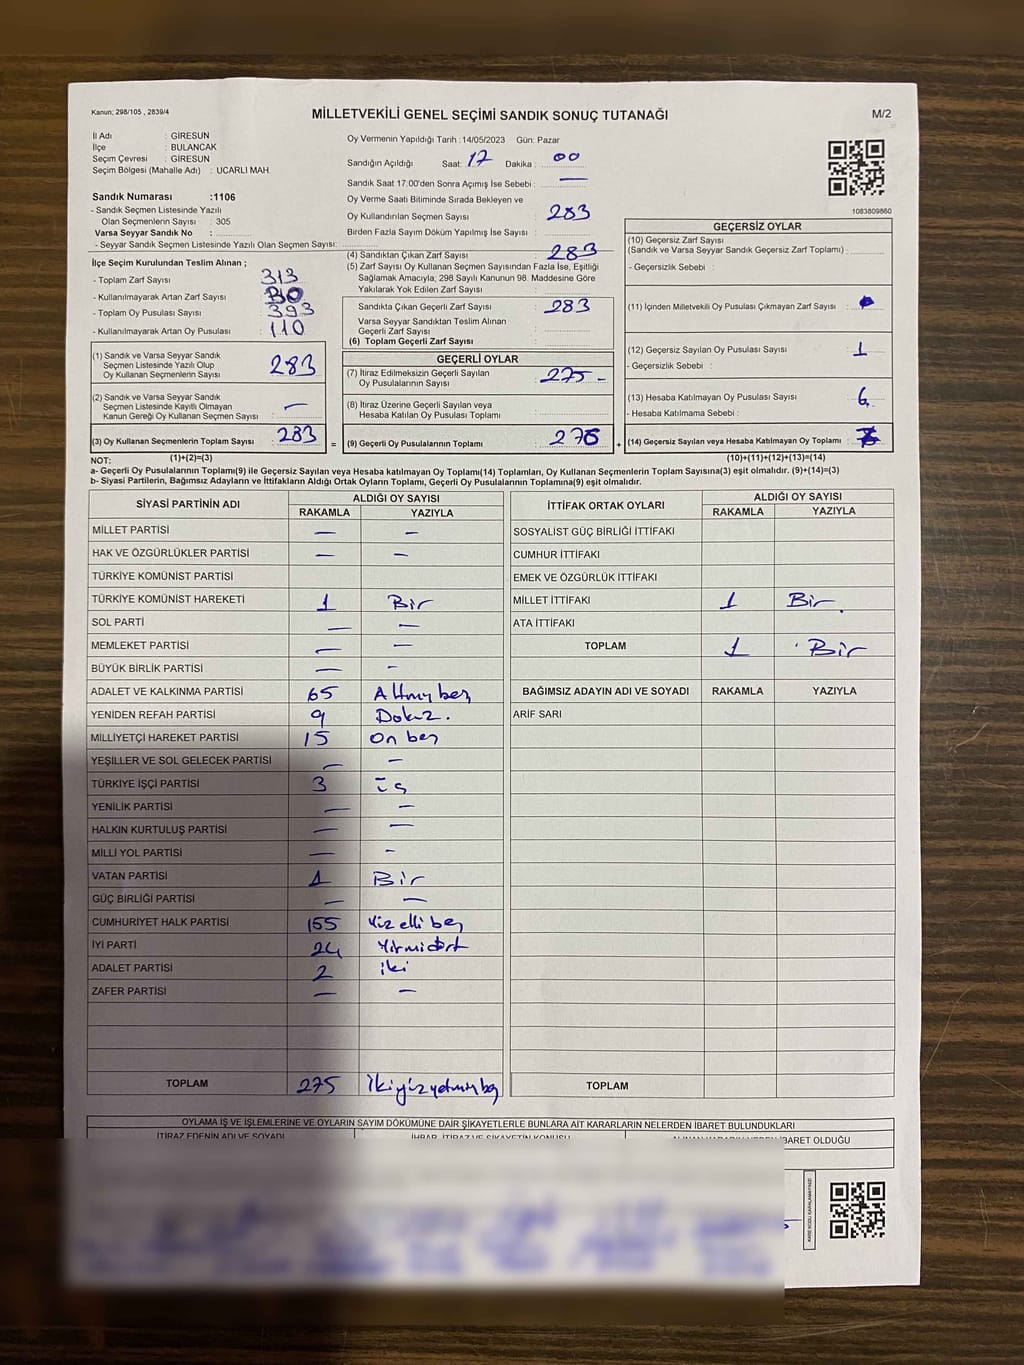 Kanun; 298/105 , 2839/4
MİLLETVEKİLİ GENEL SEÇİMİ SANDIK SONUÇ TUTANAĞI
M/2
İl Adı : GİRESUN
İlçe : BULANCAK
Seçim Çevresi : GİRESUN
Seçim Bölgesi (Mahalle Adı) : UCARLI MAH.
Sandık Numarası :1106
- Sandık Seçmen Listesinde Yazılı
Olan Seçmenlerin Sayısı : 305
Varsa Seyyar Sandık No :
- Seyyar Sandık Seçmen Listesinde Yazılı Olan Seçmen Sayısı:
Oy Vermenin Yapıldığı Tarih : 14/05/2023 Gün: Pazar
Sandığın Açıldığı Saat: 17 Dakika : 00
Sandık Saat 17:00'den Sonra Açımış İse Sebebi : —
Oy Verme Saati Bitiminde Sırada Bekleyen ve
Oy Kullandırılan Seçmen Sayısı : 283
Birden Fazla Sayım Döküm Yapılmış İse Sayısı :
1083809860
İlçe Seçim Kurulundan Teslim Alınan ;
- Toplam Zarf Sayısı : 313
- Kullanılmayarak Artan Zarf Sayısı : 30
- Toplam Oy Pusulası Sayısı : 393
- Kullanılmayarak Artan Oy Pusulası : 110
(1) Sandık ve Varsa Seyyar Sandık
Seçmen Listesinde Yazılı Olup
Oy Kullanan Seçmenlerin Sayısı : 283
(2) Sandık ve Varsa Seyyar Sandık
Seçmen Listesinde Kayıtlı Olmayan
Kanun Gereği Oy Kullanan Seçmen Sayısı : —
(3) Oy Kullanan Seçmenlerin Toplam Sayısı : 283
(4) Sandıktan Çıkan Zarf Sayısı : 283
(5) Zarf Sayısı Oy Kullanan Seçmen Sayısından Fazla İse, Eşitliği
Sağlamak Amacıyla; 298 Sayılı Kanunun 98. Maddesine Göre
Yakılarak Yok Edilen Zarf Sayısı :
Sandıkta Çıkan Geçerli Zarf Sayısı : 283
Varsa Seyyar Sandıktan Teslim Alınan
Geçerli Zarf Sayısı :
(6) Toplam Geçerli Zarf Sayısı :
GEÇERLİ OYLAR
(7) İtiraz Edilmeksizin Geçerli Sayılan
Oy Pusulalarının Sayısı : 275 -
(8) İtiraz Üzerine Geçerli Sayılan veya
Hesaba Katılan Oy Pusulası Toplamı :
= (9) Geçerli Oy Pusulalarının Toplamı : 276 +
GEÇERSİZ OYLAR
(10) Geçersiz Zarf Sayısı
(Sandık ve Varsa Seyyar Sandık Geçersiz Zarf Toplamı) :
- Geçersizlik Sebebi :
(11) İçinden Milletvekili Oy Pusulası Çıkmayan Zarf Sayısı :
(12) Geçersiz Sayılan Oy Pusulası Sayısı : 1
- Geçersizlik Sebebi :
(13) Hesaba Katılmayan Oy Pusulası Sayısı : 6
- Hesaba Katılmama Sebebi :
(14) Geçersiz Sayılan veya Hesaba Katılmayan Oy Toplamı :
NOT: (1)+(2)=(3) (10)+(11)+(12)+(13)=(14)
a- Geçerli Oy Pusulalarının Toplamı(9) ile Geçersiz Sayılan veya Hesaba katılmayan Oy Toplamı(14) Toplamları, Oy Kullanan Seçmenlerin Toplam Sayısına(3) eşit olmalıdır. (9)+(14)=(3)
b- Siyasi Partilerin, Bağımsız Adayların ve İttifakların Aldığı Ortak Oyların Toplamı, Geçerli Oy Pusulalarının Toplamına(9) eşit olmalıdır.
SİYASİ PARTİNİN ADI ALDIĞI OY SAYISI
RAKAMLA YAZIYLA
MİLLET PARTİSİ — —
HAK VE ÖZGÜRLÜKLER PARTİSİ — —
TÜRKİYE KOMÜNİST PARTİSİ
TÜRKİYE KOMÜNİST HAREKETİ 1 Bir
SOL PARTİ — —
MEMLEKET PARTİSİ — —
BÜYÜK BİRLİK PARTİSİ — -
ADALET VE KALKINMA PARTİSİ 65 Altmış beş
YENİDEN REFAH PARTİSİ 9 Dokuz.
MİLLİYETÇİ HAREKET PARTİSİ 15 On beş
YEŞİLLER VE SOL GELECEK PARTİSİ — —
TÜRKİYE İŞÇİ PARTİSİ 3 üç
YENİLİK PARTİSİ — —
HALKIN KURTULUŞ PARTİSİ — —
MİLLİ YOL PARTİSİ — -
VATAN PARTİSİ 1 Bir
GÜÇ BİRLİĞİ PARTİSİ — —
CUMHURİYET HALK PARTİSİ 155 Yüz elli beş
İYİ PARTİ 24 Yirmidört
ADALET PARTİSİ 2 iki
ZAFER PARTİSİ — —
TOPLAM 275 İkiyüzyetmiş beş
İTTİFAK ORTAK OYLARI ALDIĞI OY SAYISI
RAKAMLA YAZIYLA
SOSYALİST GÜÇ BİRLİĞİ İTTİFAKI
CUMHUR İTTİFAKI
EMEK VE ÖZGÜRLÜK İTTİFAKI
MİLLET İTTİFAKI 1 Bir
ATA İTTİFAKI
TOPLAM 1 Bir
BAĞIMSIZ ADAYIN ADI VE SOYADI RAKAMLA YAZIYLA
ARİF SARI
TOPLAM
OYLAMA İŞ VE İŞLEMLERİNE VE OYLARIN SAYIM DÖKÜMÜNE DAİR ŞİKAYETLERLE BUNLARA AİT KARARLARIN NELERDEN İBARET BULUNDUKLARI
İTİRAZ EDENİN ADI VE SOYADI İHBAR, İTİRAZ VE ŞİKAYETİN KONUSU İBARET OLDUĞU